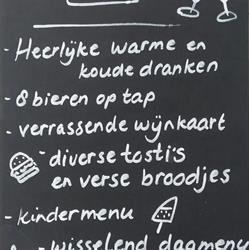 - Heerlijke warme en
koude dranken
- 8 bieren op tap
- verrassende wijnkaart
- diverse tosti's
en verse broodjes
- kindermenu
- wisselend dagmenu